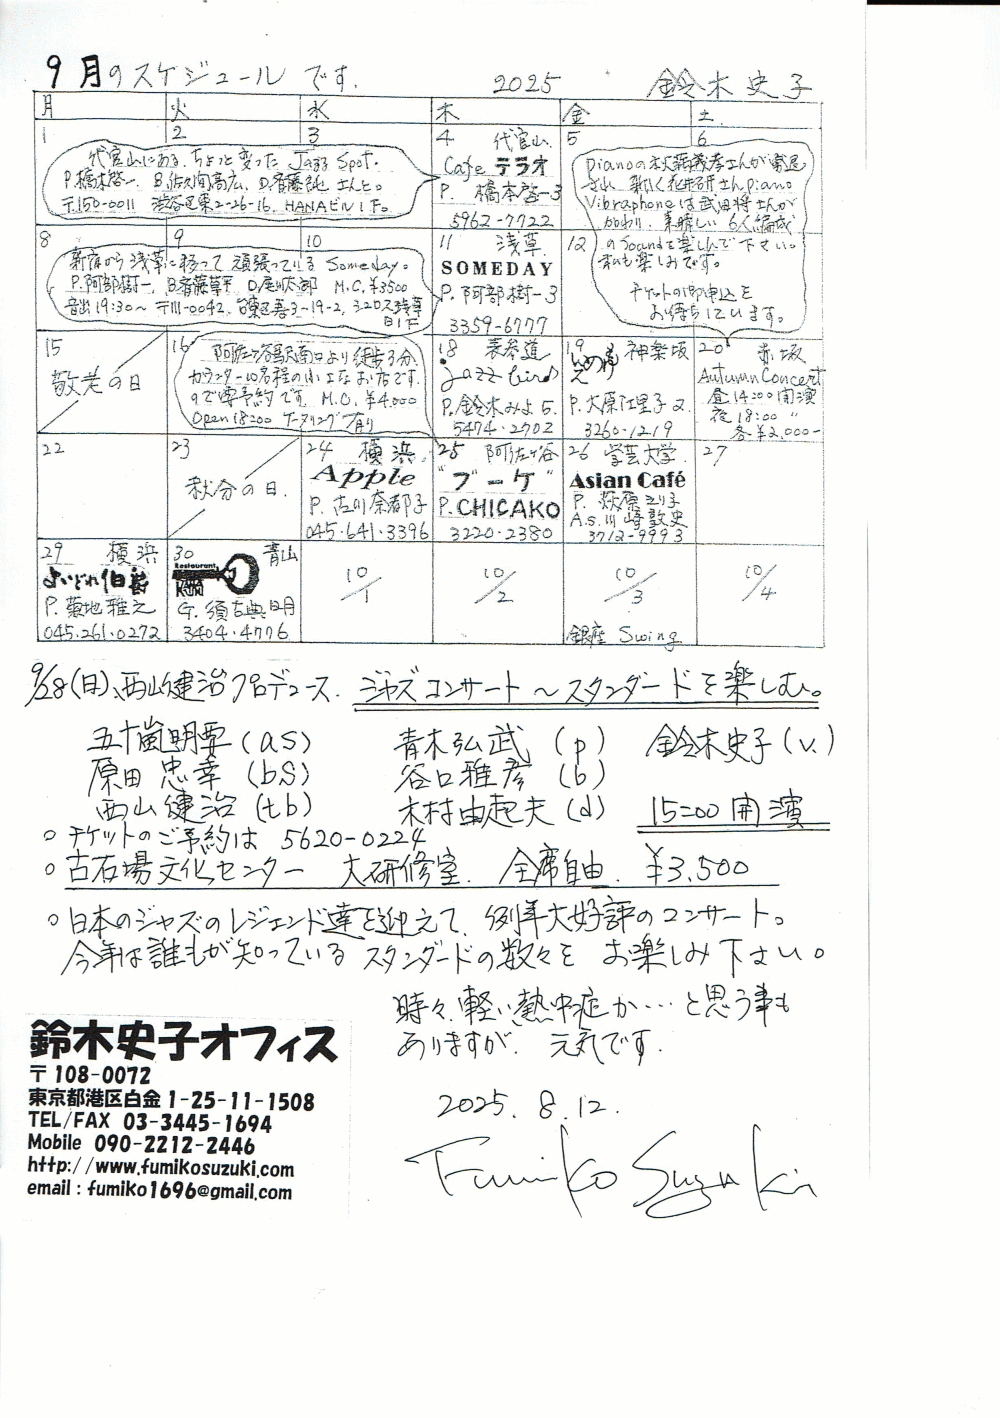 9月のスケジュールです. 2025 鈴木史子
月 火 水 木 金 土
1 2 3
代官山にある、ちょっと変った Jazz Spot.
P.橋本啓一. B.佐久間高広, D.斉藤純さんと。
〒150-0011 渋谷区東2-26-16. HANAビル1F。
4 代官山
Cafe テラオ
P. 橋本啓一3
5962-7722
5 6
Pianoの
さん
Vibraphoneは武田将さんが
加わり、素晴しい 6人編成
のSoundを楽しんで下さい。
私も楽しみです。
チケットの御申込を
お待ちしています。
8 9 10
新宿から浅草に移って頑張っている Someday。
P.阿部樹一, B.斉藤草平 M.C. ¥3500
音出し19:30〜 〒111-0042,
B1F
11 浅草
SOMEDAY
P. 阿部樹一3
3359-6777
12
15
敬老の日
16
阿佐ヶ谷駅南口より徒歩3分
カウンター10名程の小さなお店です.
ので要予約です. M.C. ¥4,000
Open 18:00 ケータリング有り
18 表参道
jazz bird
P.鈴木みよ 5.
5474-2702
19 神楽坂
もりのいえ
P.大原江里子 2.
3260-1219
20 赤坂
Autumn Concert
昼14:00開演
夜18:00 〃
各¥2,000-
22
23
秋分の日.
24 横浜
Apple
P. 古川奈都子
045.641.3396
25 阿佐ヶ谷
"ブーケ"
P. CHICAKO
3220-2380
26 学芸大学.
Asian Café
P. 萩原えり子
A.s.川崎敦史
3712-9993
27
29 横浜
よいどれ伯爵
P. 菊地雅之
045.261.0272
30 青山
Restaurant
G. 須古典明
3404.4776
10/1
10/2
10/3
銀座 Swing
10/4
9/28(日)、西山健治プロデュース. ジャズコンサート〜スタンダードを楽しむ。
五十嵐明要(as) 青木弘武(p) 鈴木史子(v.)
原田忠幸(bs) 谷口雅彦(b)
西山健治(tb) 木村由起夫(d) 15:00開演
○チケットのご予約は 5620-0224
○古石場文化センター 大研修室. 全席自由. ¥3,500
○日本のジャズのレジェンド達を迎えて、例年大好評のコンサート。
今年は誰もが知っているスタンダードの数々をお楽しみ下さい。
時々、軽い熱中症か…と思う事も
ありますが、元気です.
鈴木史子オフィス
〒108-0072
東京都港区白金1-25-11-1508
TEL/FAX 03-3445-1694
Mobile 090-2212-2446
http://www.fumikosuzuki.com
email : fumiko1696@gmail.com
2025. 8.12.
Fumiko Suzuki